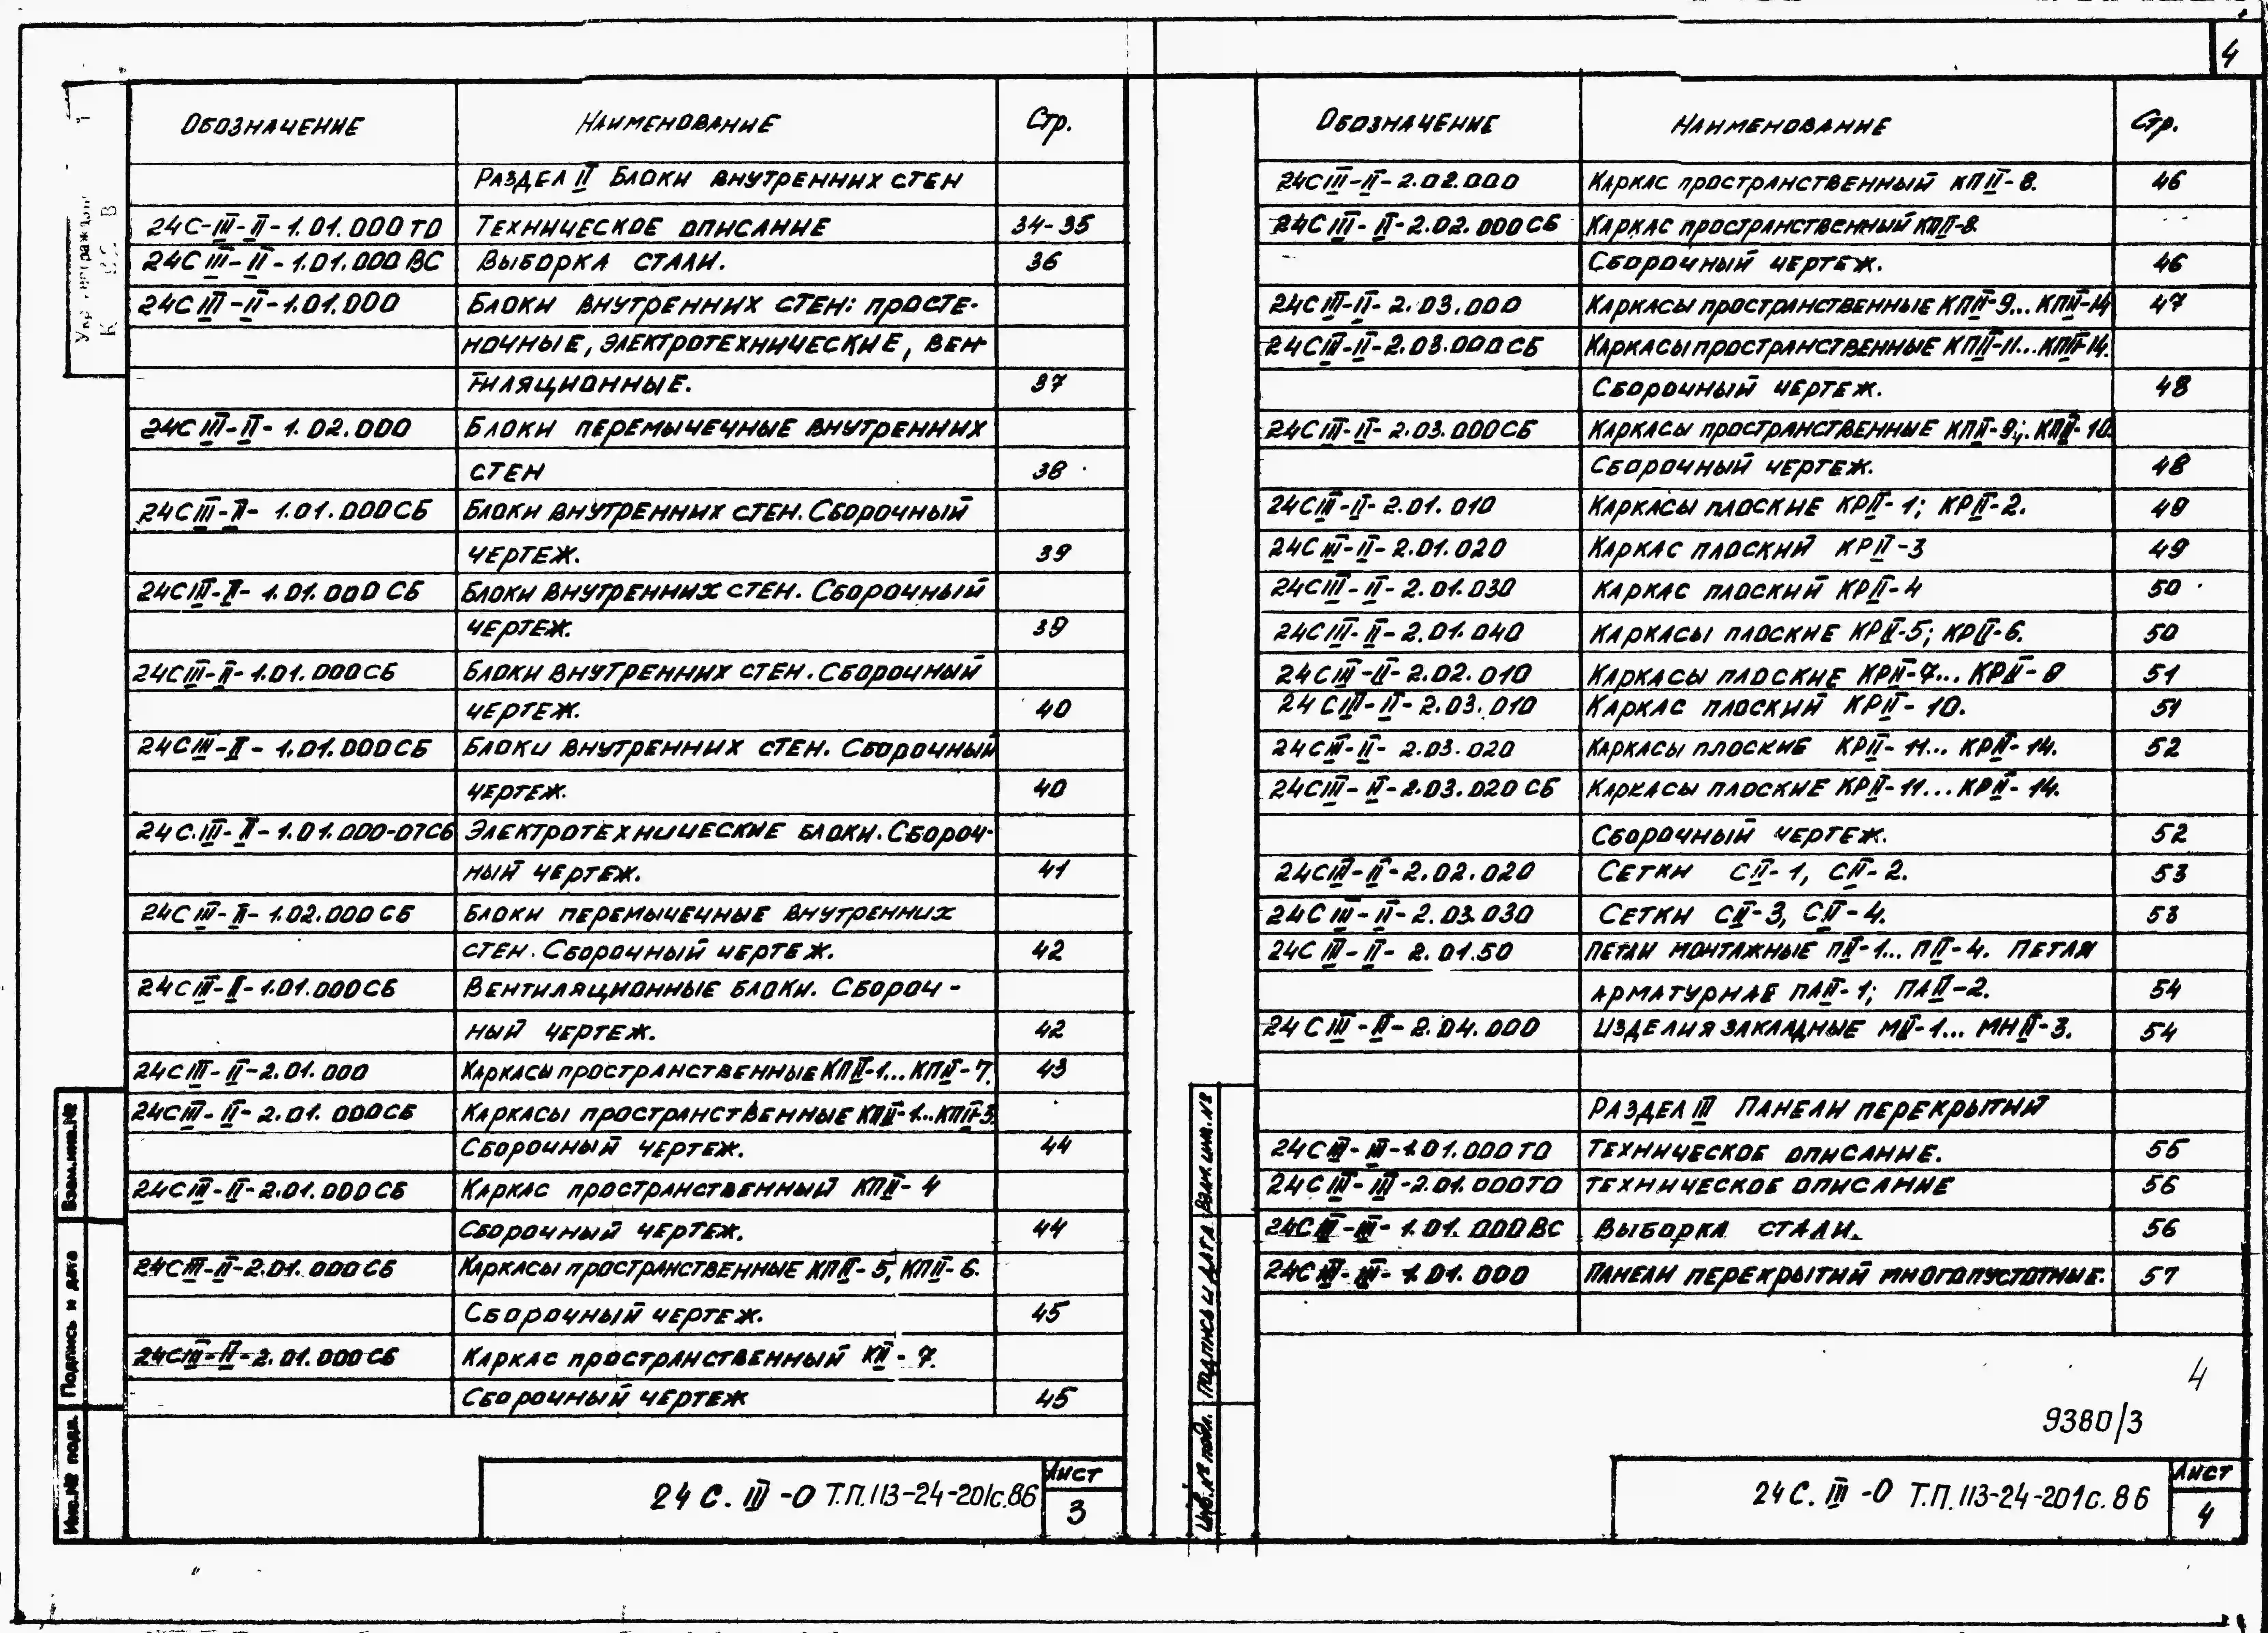 4
Обозначение Наименование Стр.
Раздел II Блоки внутренних стен
24С-III-II-1.01.000 ТО Техническое описание 34-35
24С III-II-1.01.000 ВС Выборка стали. 36
24С III-II-1.01.000 Блоки внутренних стен: просте-
ночные, электротехнические, вен-
тиляционные. 37
24С III-II-1.02.000 Блоки перемычечные внутренних
стен 38
24С III-II-1.01.000 СБ Блоки внутренних стен. Сборочный
чертеж. 39
24С III-II-1.01.000 СБ Блоки внутренних стен. Сборочный
чертеж. 39
24С III-II-1.01.000 СБ Блоки внутренних стен. Сборочный
чертеж. 40
24С III-II-1.01.000 СБ Блоки внутренних стен. Сборочный
чертеж. 40
24С.III-II-1.01.000-07СБ Электротехнические блоки. Сбороч-
ный чертеж. 41
24С III-II-1.02.000 СБ Блоки перемычечные внутренних
стен. Сборочный чертеж. 42
24С III-II-1.01.000 СБ Вентиляционные блоки. Сбороч-
ный чертеж. 42
24С III-II-2.01.000 Каркасы пространственные КПII-1...КПII-7. 43
24С III-II-2.01.000 СБ Каркасы пространственные КПII-1...КПII-3.
Сборочный чертеж. 44
24С III-II-2.01.000 СБ Каркас пространственный КПII-4
Сборочный чертеж. 44
24С III-II-2.01.000 СБ Каркасы пространственные КПII-5; КПII-6.
Сборочный чертеж. 45
24С III-II-2.01.000 СБ Каркас пространственный КII-7.
Сборочный чертеж 45
24 С. III -О Т.П. 113-24-201с.86
Лист
3
Взам.инв.№
Подпись и дата
Инв.№ подл.
Обозначение Наименование Стр.
24С III-II-2.02.000 Каркас пространственный КПII-8. 46
24С III-II-2.02.000 СБ Каркас пространственный КПII-8.
Сборочный чертеж. 46
24С III-II-2.03.000 Каркасы пространственные КПII-9...КПII-14 47
24С III-II-2.03.000 СБ Каркасы пространственные КПII-11...КПII-14.
Сборочный чертеж. 48
24С III-II-2.03.000 СБ Каркасы пространственные КПII-9; КПII-10.
Сборочный чертеж. 48
24С III-II-2.01.010 Каркасы плоские КРII-1; КРII-2. 49
24С III-II-2.01.020 Каркас плоский КРII-3 49
24С III-II-2.01.030 Каркас плоский КРII-4 50
24С III-II-2.01.040 Каркасы плоские КРII-5; КРII-6. 50
24С III-II-2.02.010 Каркасы плоские КРII-7...КРII-9 51
24С III-II-2.03.010 Каркас плоский КРII-10. 51
24С III-II-2.03.020 Каркасы плоские КРII-11...КРII-14. 52
24С III-II-2.03.020 СБ Каркасы плоские КРII-11...КРII-14.
Сборочный чертеж. 52
24С III-II-2.02.020 Сетки СII-1, СII-2. 53
24С III-II-2.03.030 Сетки СII-3, СII-4. 53
24С III-II-2.01.50 Петли монтажные ПII-1...ПII-4. Петля
арматурная ПАII-1; ПАII-2. 54
24С III-II-2.04.000 Изделия закладные МII-1...МНII-3. 54
Раздел III Панели перекрытий
24С III-III-1.01.000 ТО Техническое описание. 56
24С III-III-2.01.000 ТО Техническое описание 56
24С III-III-1.01.000 ВС Выборка стали. 56
24С III-III-1.01.000 Панели перекрытий многопустотные. 57
4
9380/3
24 С. III -О Т.П. 113-24-201с.86
Лист
4
Взам.инв.№
Подпись и дата
Инв.№ подл.